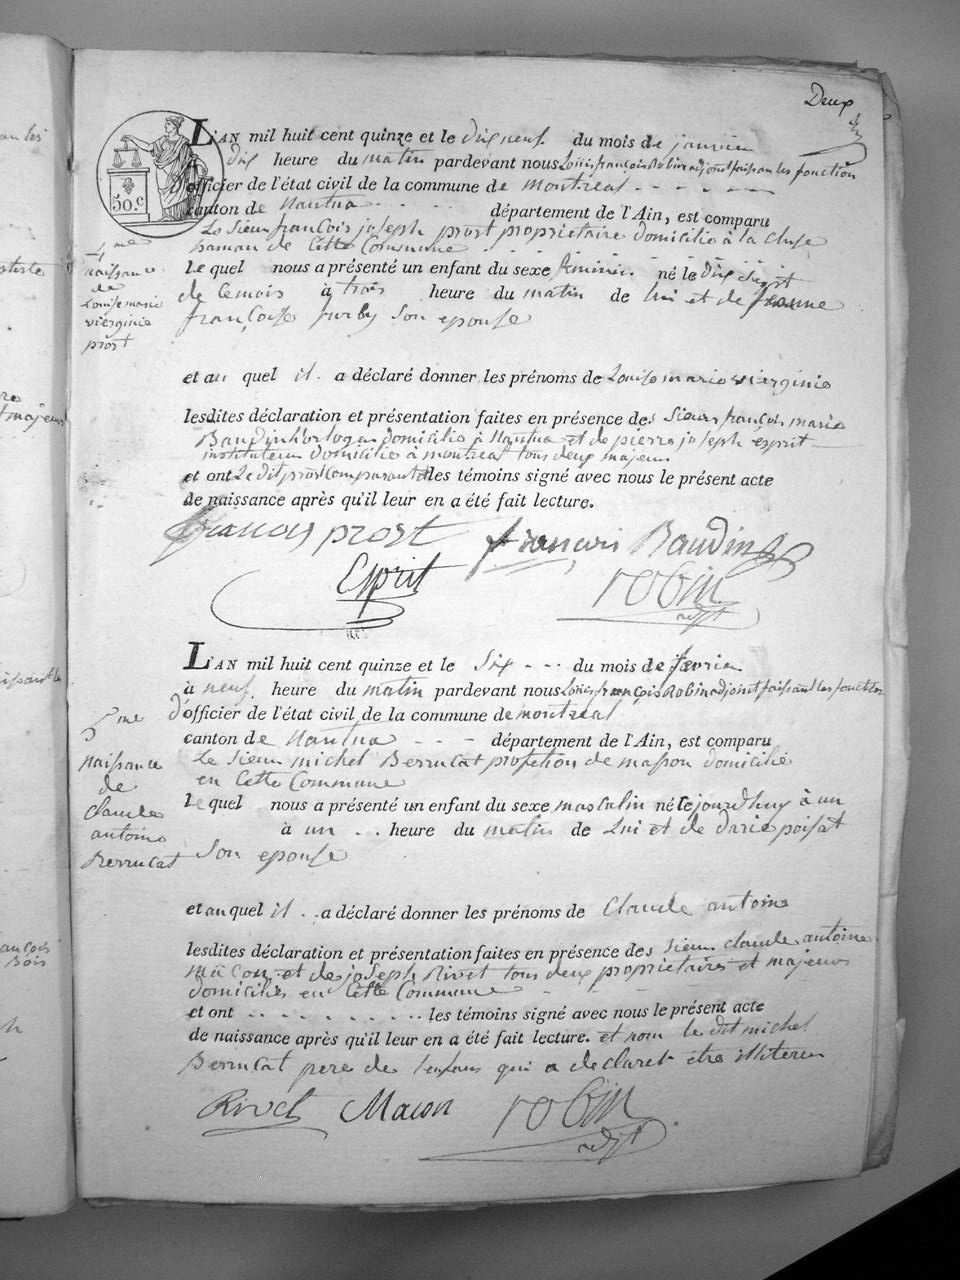 Deux
L'AN mil huit cent quinze et le dix neuf du mois de janvier
dix heure du matin pardevant nous Louis françois Robin adjoint faisant les fonction
d'officier de l'état civil de la commune de montreal
50.c
canton de Nantua département de l'Ain, est comparu
Le sieur françois joseph prost proprietaire domicilié à la cluse
hamau de Cette Commune
4me
naissance
de
Louise marie
vierginie
prost
Le quel nous a présenté un enfant du sexe feminin né le dix sept
de ce mois à trois heure du matin de lui et de jeanne
françoise jurby son epouse
et au quel il a déclaré donner les prénoms de Louise marie vierginie
lesdites déclaration et présentation faites en présence des sieurs françois marie
Baudin horloger domicilié à Nantua et de pierre joseph esprit
instituteur domicilié à montreal tous deux majeurs
et ont Le dit prost Comparant et les témoins signé avec nous le présent acte
de naissance après qu'il leur en a été fait lecture.
francois prost françois Baudin
Esprit robin
adjt
L'AN mil huit cent quinze et le Six du mois de fevrier
à neuf heure du matin pardevant nous Louis françois Robin adjoint faisant les fonction
d'officier de l'état civil de la commune de montreal
5me
naissance
de
claude
antoine
Berrucat
canton de Nantua département de l'Ain, est comparu
Le sieur michel Berrucat profetion de masson domicilié
en Cette Commune
Le quel nous a présenté un enfant du sexe masculin né cejourdhuy à un
à un heure du matin de Lui et de darie poisat
son epouse
et au quel il a déclaré donner les prénoms de Claude antoine
lesdites déclaration et présentation faites en présence des sieurs claude antoine
macon et de joseph Rivet tous deux proprietaires et majeurs
domicilies en Cette Commune
et ont les témoins signé avec nous le présent acte
de naissance après qu'il leur en a été fait lecture. et non le dit michel
Berrucat pere de l'enfans qui a declaret être illiteres
Rivet Macon robin
adjt